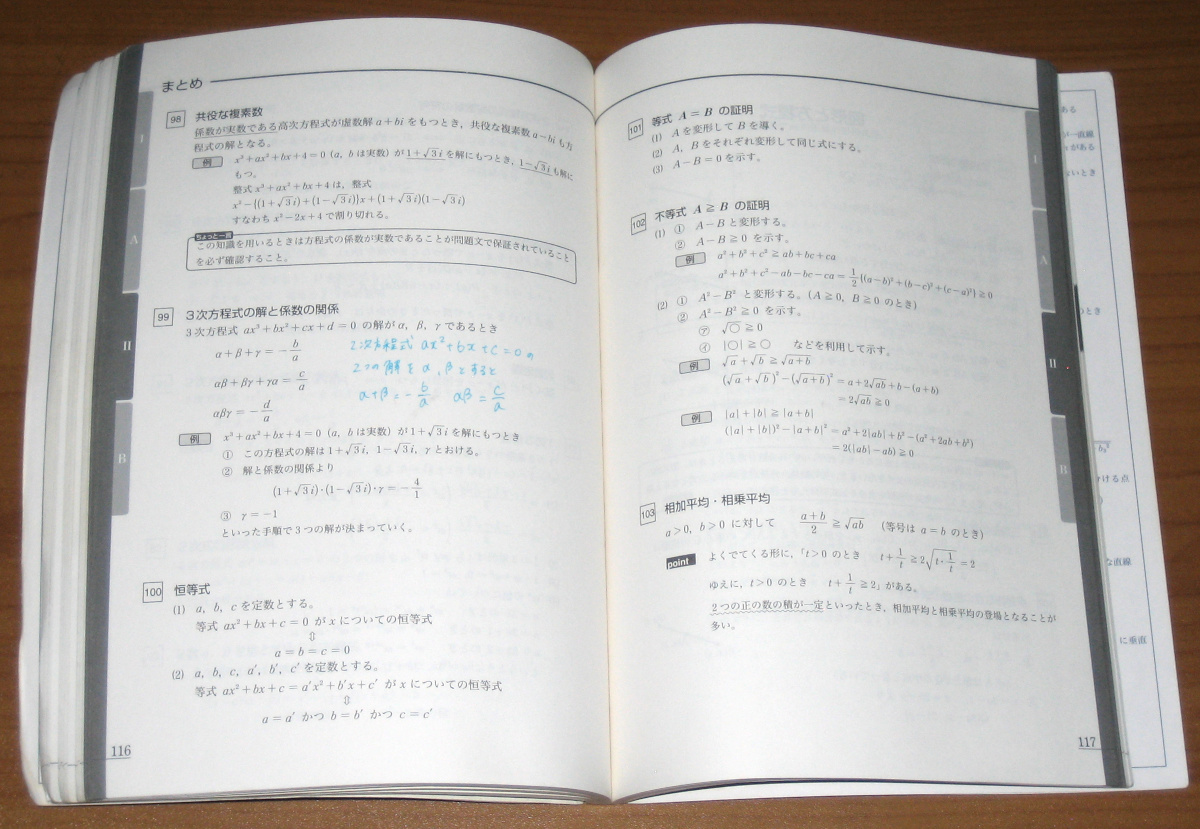 まとめ
98 共役な複素数
係数が実数である高次方程式が虚数解 a+bi をもつとき，共役な複素数 a−bi も方
程式の解となる。
例 x³+ax²+bx+4=0 (a, b は実数) が 1+√3i を解にもつとき，1−√3i も解に
もつ。
整式 x³+ax²+bx+4 は，整式
x²−{(1+√3i)+(1−√3i)}x+(1+√3i)(1−√3i)
すなわち x²−2x+4 で割り切れる。
ちょっと一言
この知識を用いるときは方程式の係数が実数であることが問題文で保証されていること
を必ず確認すること。
99 3次方程式の解と係数の関係
3次方程式 ax³+bx²+cx+d=0 の解が α, β, γ であるとき
α+β+γ=−b/a
αβ+βγ+γα=c/a
αβγ=−d/a
2次方程式 ax²+bx+c=0 の
2つの解を α, β とすると
α+β=−b/a αβ=c/a
例 x³+ax²+bx+4=0 (a, b は実数) が 1+√3i を解にもつとき
① この方程式の解は 1+√3i, 1−√3i, γ とおける。
② 解と係数の関係より
(1+√3i)・(1−√3i)・γ=−4/1
③ γ=−1
といった手順で3つの解が決まっていく。
100 恒等式
(1) a, b, c を定数とする。
等式 ax²+bx+c=0 が x についての恒等式
⇕
a=b=c=0
(2) a, b, c, a′, b′, c′ を定数とする。
等式 ax²+bx+c=a′x²+b′x+c′ が x についての恒等式
⇕
a=a′ かつ b=b′ かつ c=c′
116
I
A
II
B
101 等式 A=B の証明
(1) A を変形して B を導く。
(2) A, B をそれぞれ変形して同じ式にする。
(3) A−B=0 を示す。
102 不等式 A≧B の証明
(1) ① A−B と変形する。
② A−B≧0 を示す。
例 a²+b²+c²≧ab+bc+ca
a²+b²+c²−ab−bc−ca=1/2{(a−b)²+(b−c)²+(c−a)²}≧0
(2) ① A²−B² と変形する。(A≧0, B≧0 のとき)
② A²−B²≧0 を示す。
㋐ √○≧0
㋑ |○|≧○ などを利用して示す。
例 √a+√b≧√(a+b)
(√a+√b)²−(√(a+b))²=a+2√(ab)+b−(a+b)
=2√(ab)≧0
例 |a|+|b|≧|a+b|
(|a|+|b|)²−|a+b|²=a²+2|ab|+b²−(a²+2ab+b²)
=2(|ab|−ab)≧0
103 相加平均・相乗平均
a>0, b>0 に対して (a+b)/2≧√(ab) (等号は a=b のとき)
point よくでてくる形に，「t>0 のとき t+1/t≧2√(t・1/t)=2
ゆえに，t>0 のとき t+1/t≧2」がある。
2つの正の数の積が一定といったとき，相加平均と相乗平均の登場となることが
多い。
117
I
A
II
B
ある
一直線
がある
ないとき
のとき
ける点
な直線
に垂直